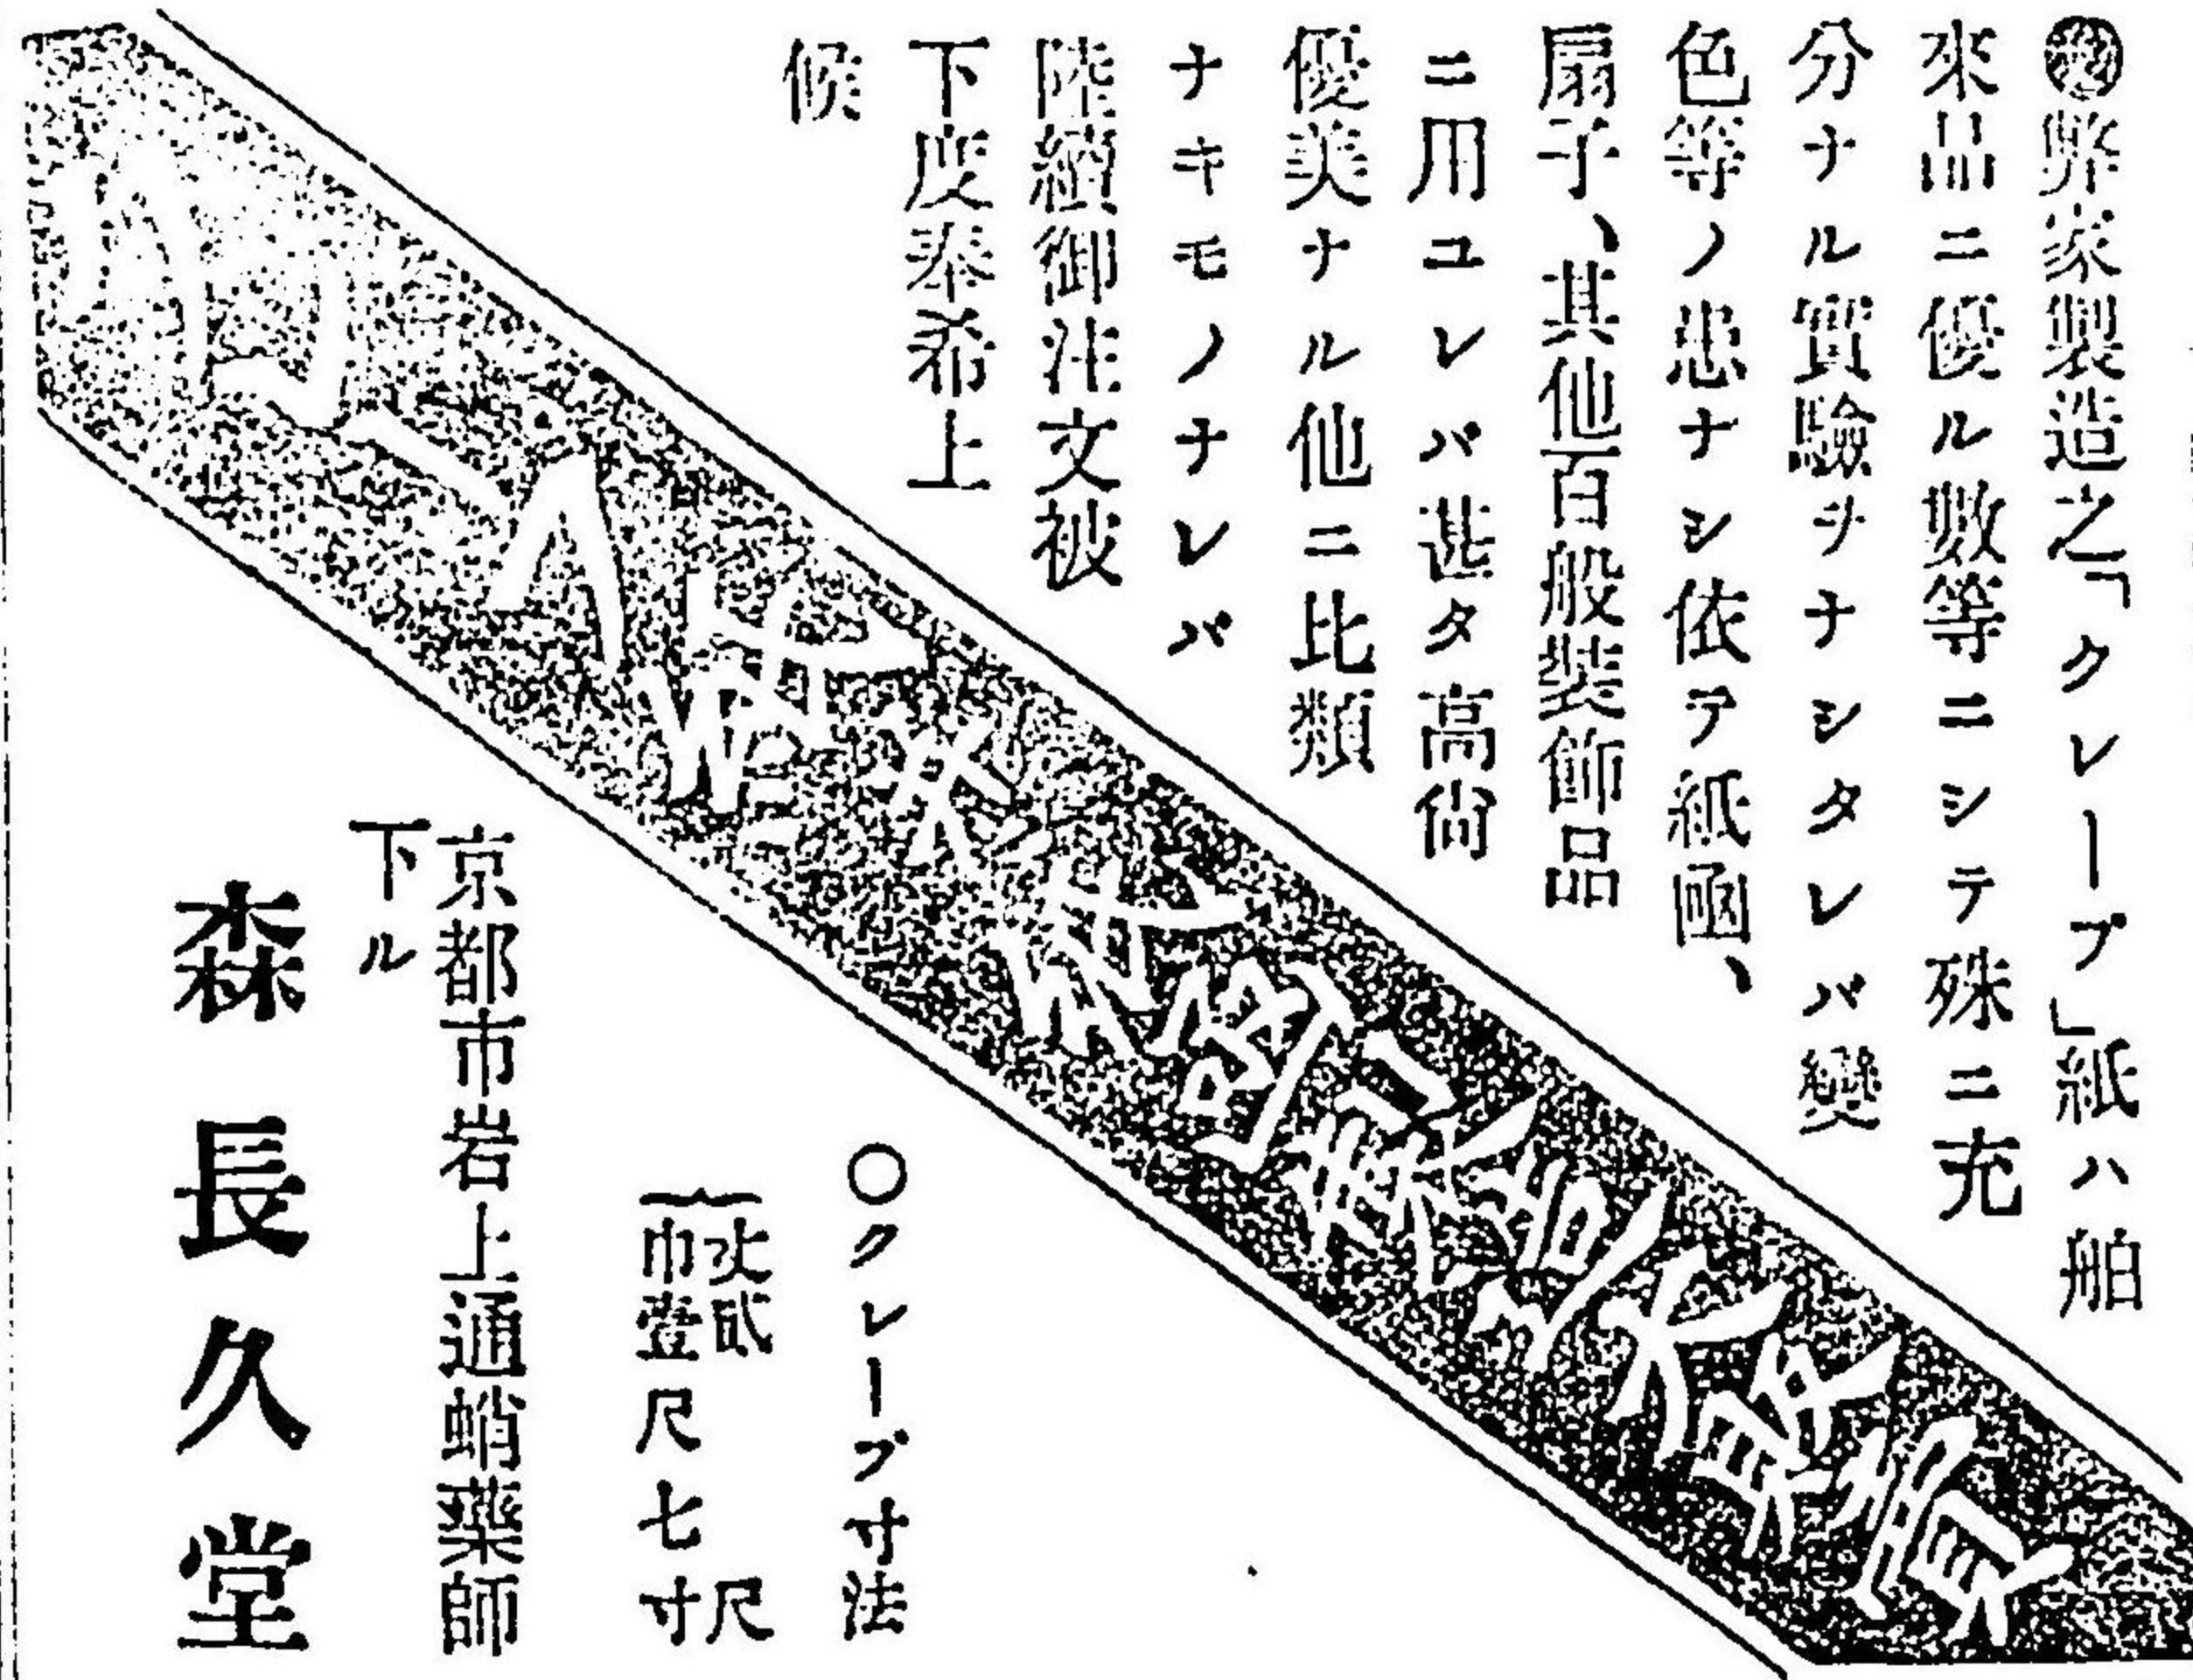 弊家製造之「クレープ」紙ハ舶
來品ニ優ル數等ニシテ殊ニ充
分ナル實驗ヲナシタレバ變
色等ノ患ナシ依テ紙凾、
扇子、其他百般裝飾品
ニ用ユレバ甚タ高尙
優美ナル他ニ比類
ナキモノナレバ
陸續御注文被
下度奉希上
候
〇クレープ寸法
丈貳尺
巾壹尺七寸
京都市岩上通蛸藥師
下ル
森長久堂